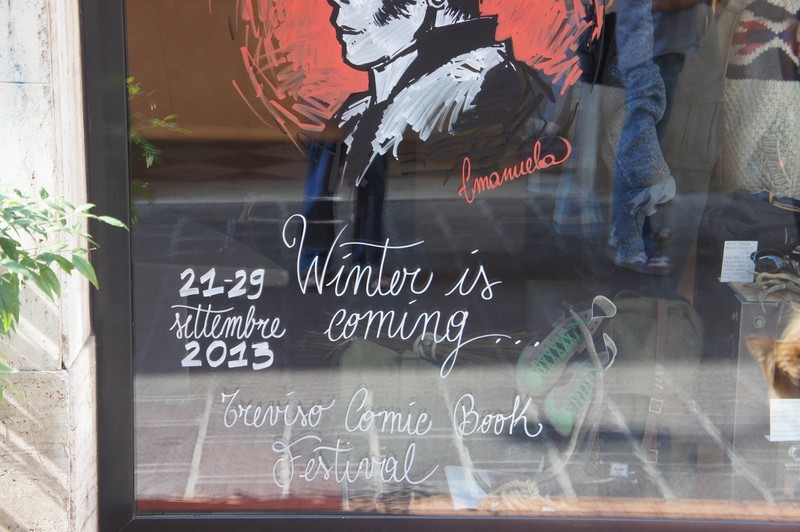 Emanuela
Winter is
coming...
21-29
settembre
2013
Treviso Comic Book
Festival